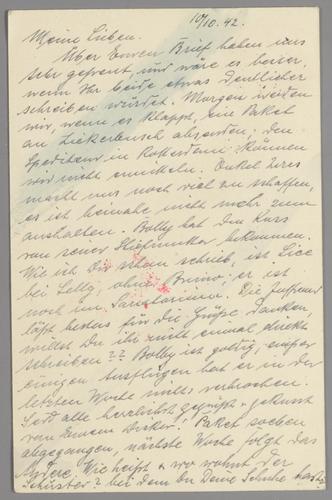 10/10. 42.
Meine Lieben.
Über Euren Brief haben uns
sehr gefreut, und wäre es besser,
wenn Ihr beide etwas deutlicher
schreiben würdet. Morgen werden
wir, wenn es klappt, ein Paket
an absenden, den
in können
wir nicht ermitteln. Onkel
macht uns noch viel zu schaffen,
es ist beinahe nicht mehr zum
aushalten. Bolly hat den Kurs
von seiner Stiefmutter bekommen.
Wie ich Dir schon schrieb, ist
bei Selly, ohne Bruno; er ist
noch im Sanatorium. Die
läßt bestens für die Grüße danken,
willst Du ihr nicht einmal direkt
schreiben?? Bolly ist , außer
einigen Ausflügen hat er in der
letzten Woche nichts verbrochen.
Seid alle herzlichst gegrüßt u. geküsst
von Eurem ! Paket soeben
abgegangen, nächste Woche folgt das
Andere. Wie heißt u. wo wohnt der
Schuster? bei dem Du Deine Schuhe hast?